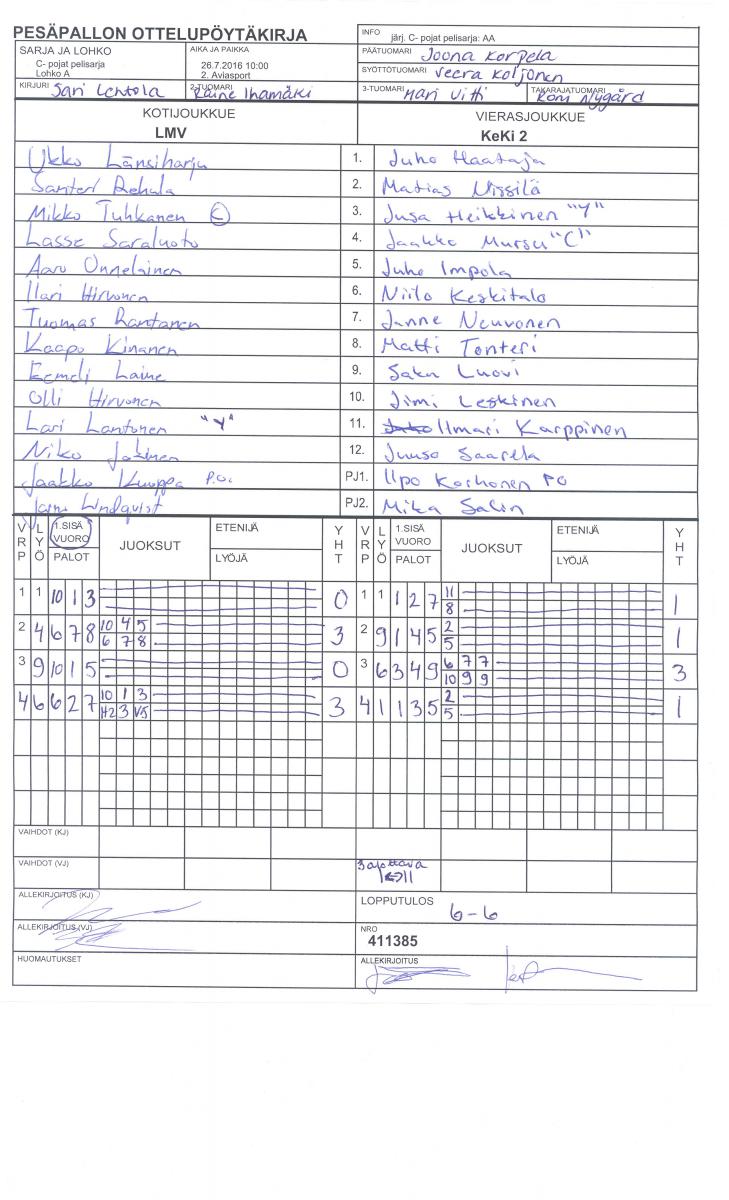 PESÄPALLON OTTELUPÖYTÄKIRJA
INFO järj. C- pojat pelisarja: AA
SARJA JA LOHKO
C- pojat pelisarja
Lohko A
AIKA JA PAIKKA
26.7.2016 10:00
2. Aviasport
PÄÄTUOMARI Joona Korpela
SYÖTTÖTUOMARI Veera Koljonen
KIRJURI Sari Lehtola
2-TUOMARI Raine Ihamäki
3-TUOMARI Mari Vitti
TAKARAJATUOMARI Roni Nygård
KOTIJOUKKUE
LMV
VIERASJOUKKUE
KeKi 2
Ukko Länsiharju 1. Juho Haataja
Santeri Rehula 2. Matias Nissilä
Mikko Tuhkanen C 3. Jusa Heikkinen "Y"
Lasse Saraluoto 4. Jaakko Mursu "C"
Aaro Onnelainen 5. Juho Impola
Ilari Hirvonen 6. Niilo Keskitalo
Tuomas Rantanen 7. Janne Neuvonen
Kaapo Kinanen 8. Matti Tonteri
Eemeli Laine 9. Saku Luovi
Olli Hirvonen 10. Jimi Leskinen
Lari Lantonen "Y" 11. Ilmari Karppinen
Niko Jokinen 12. Juuso Saarela
Jaakko Kuoppa P.O. PJ1. Upo Korhonen PO
Lindqvist PJ2. Mika Salin
VRP LYÖ 1.SISÄ VUORO PALOT JUOKSUT ETENIJÄ LYÖJÄ YHT VRP LYÖ 1.SISÄ VUORO PALOT JUOKSUT ETENIJÄ LYÖJÄ YHT
1 1 10 1 3 0 1 1 1 2 7 11 1
8
2 4 6 7 8 10 4 5 3 2 9 1 4 5 2 1
6 7 8 5
3 9 10 1 5 0 3 6 3 4 9 6 7 7 3
10 9 9
4 6 6 2 7 10 1 3 3 4 1 1 3 5 2 1
H2 3 V5 5
VAIHDOT (KJ)
VAIHDOT (VJ) 3 ajottava
1<->11
ALLEKIRJOITUS (KJ)
LOPPUTULOS
6-6
ALLEKIRJOITUS (VJ)
NRO
411385
HUOMAUTUKSET
ALLEKIRJOITUS